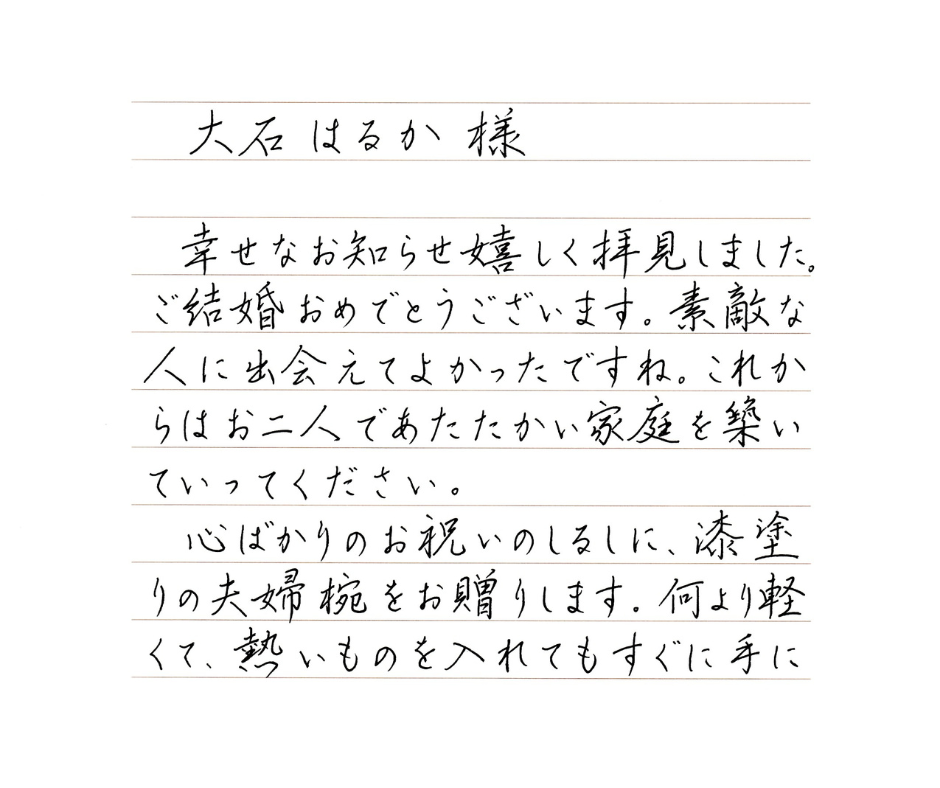 大石はるか 様
幸せなお知らせ嬉しく拝見しました。
ご結婚おめでとうございます。素敵な
人に出会えてよかったですね。これか
らはお二人であたたかい家庭を築い
ていってください。
心ばかりのお祝いのしるしに、漆塗
りの夫婦椀をお贈りします。何より軽
くて、熱いものを入れてもすぐに手に